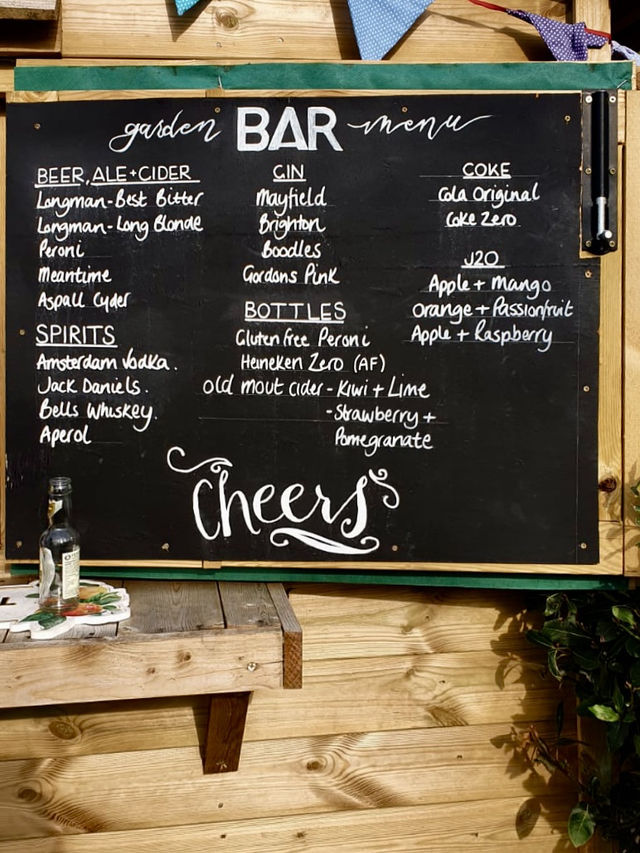 garden BAR menu
BEER, ALE + CIDER
Longman-Best Bitter
Longman-Long Blonde
Peroni
Meantime
Aspall Cyder
SPIRITS
Amsterdam Vodka.
Jack Daniels.
Bells Whiskey.
Aperol
GIN
Mayfield
Brighton
Boodles
Gordons Pink
BOTTLES
Gluten free Peroni
Heineken Zero (AF)
old mout cider - Kiwi + Lime
- Strawberry +
Pomegranate
COKE
Cola Original
Coke Zero
J2O
Apple + Mango
Orange + Passionfruit
Apple + Raspberry
cheers